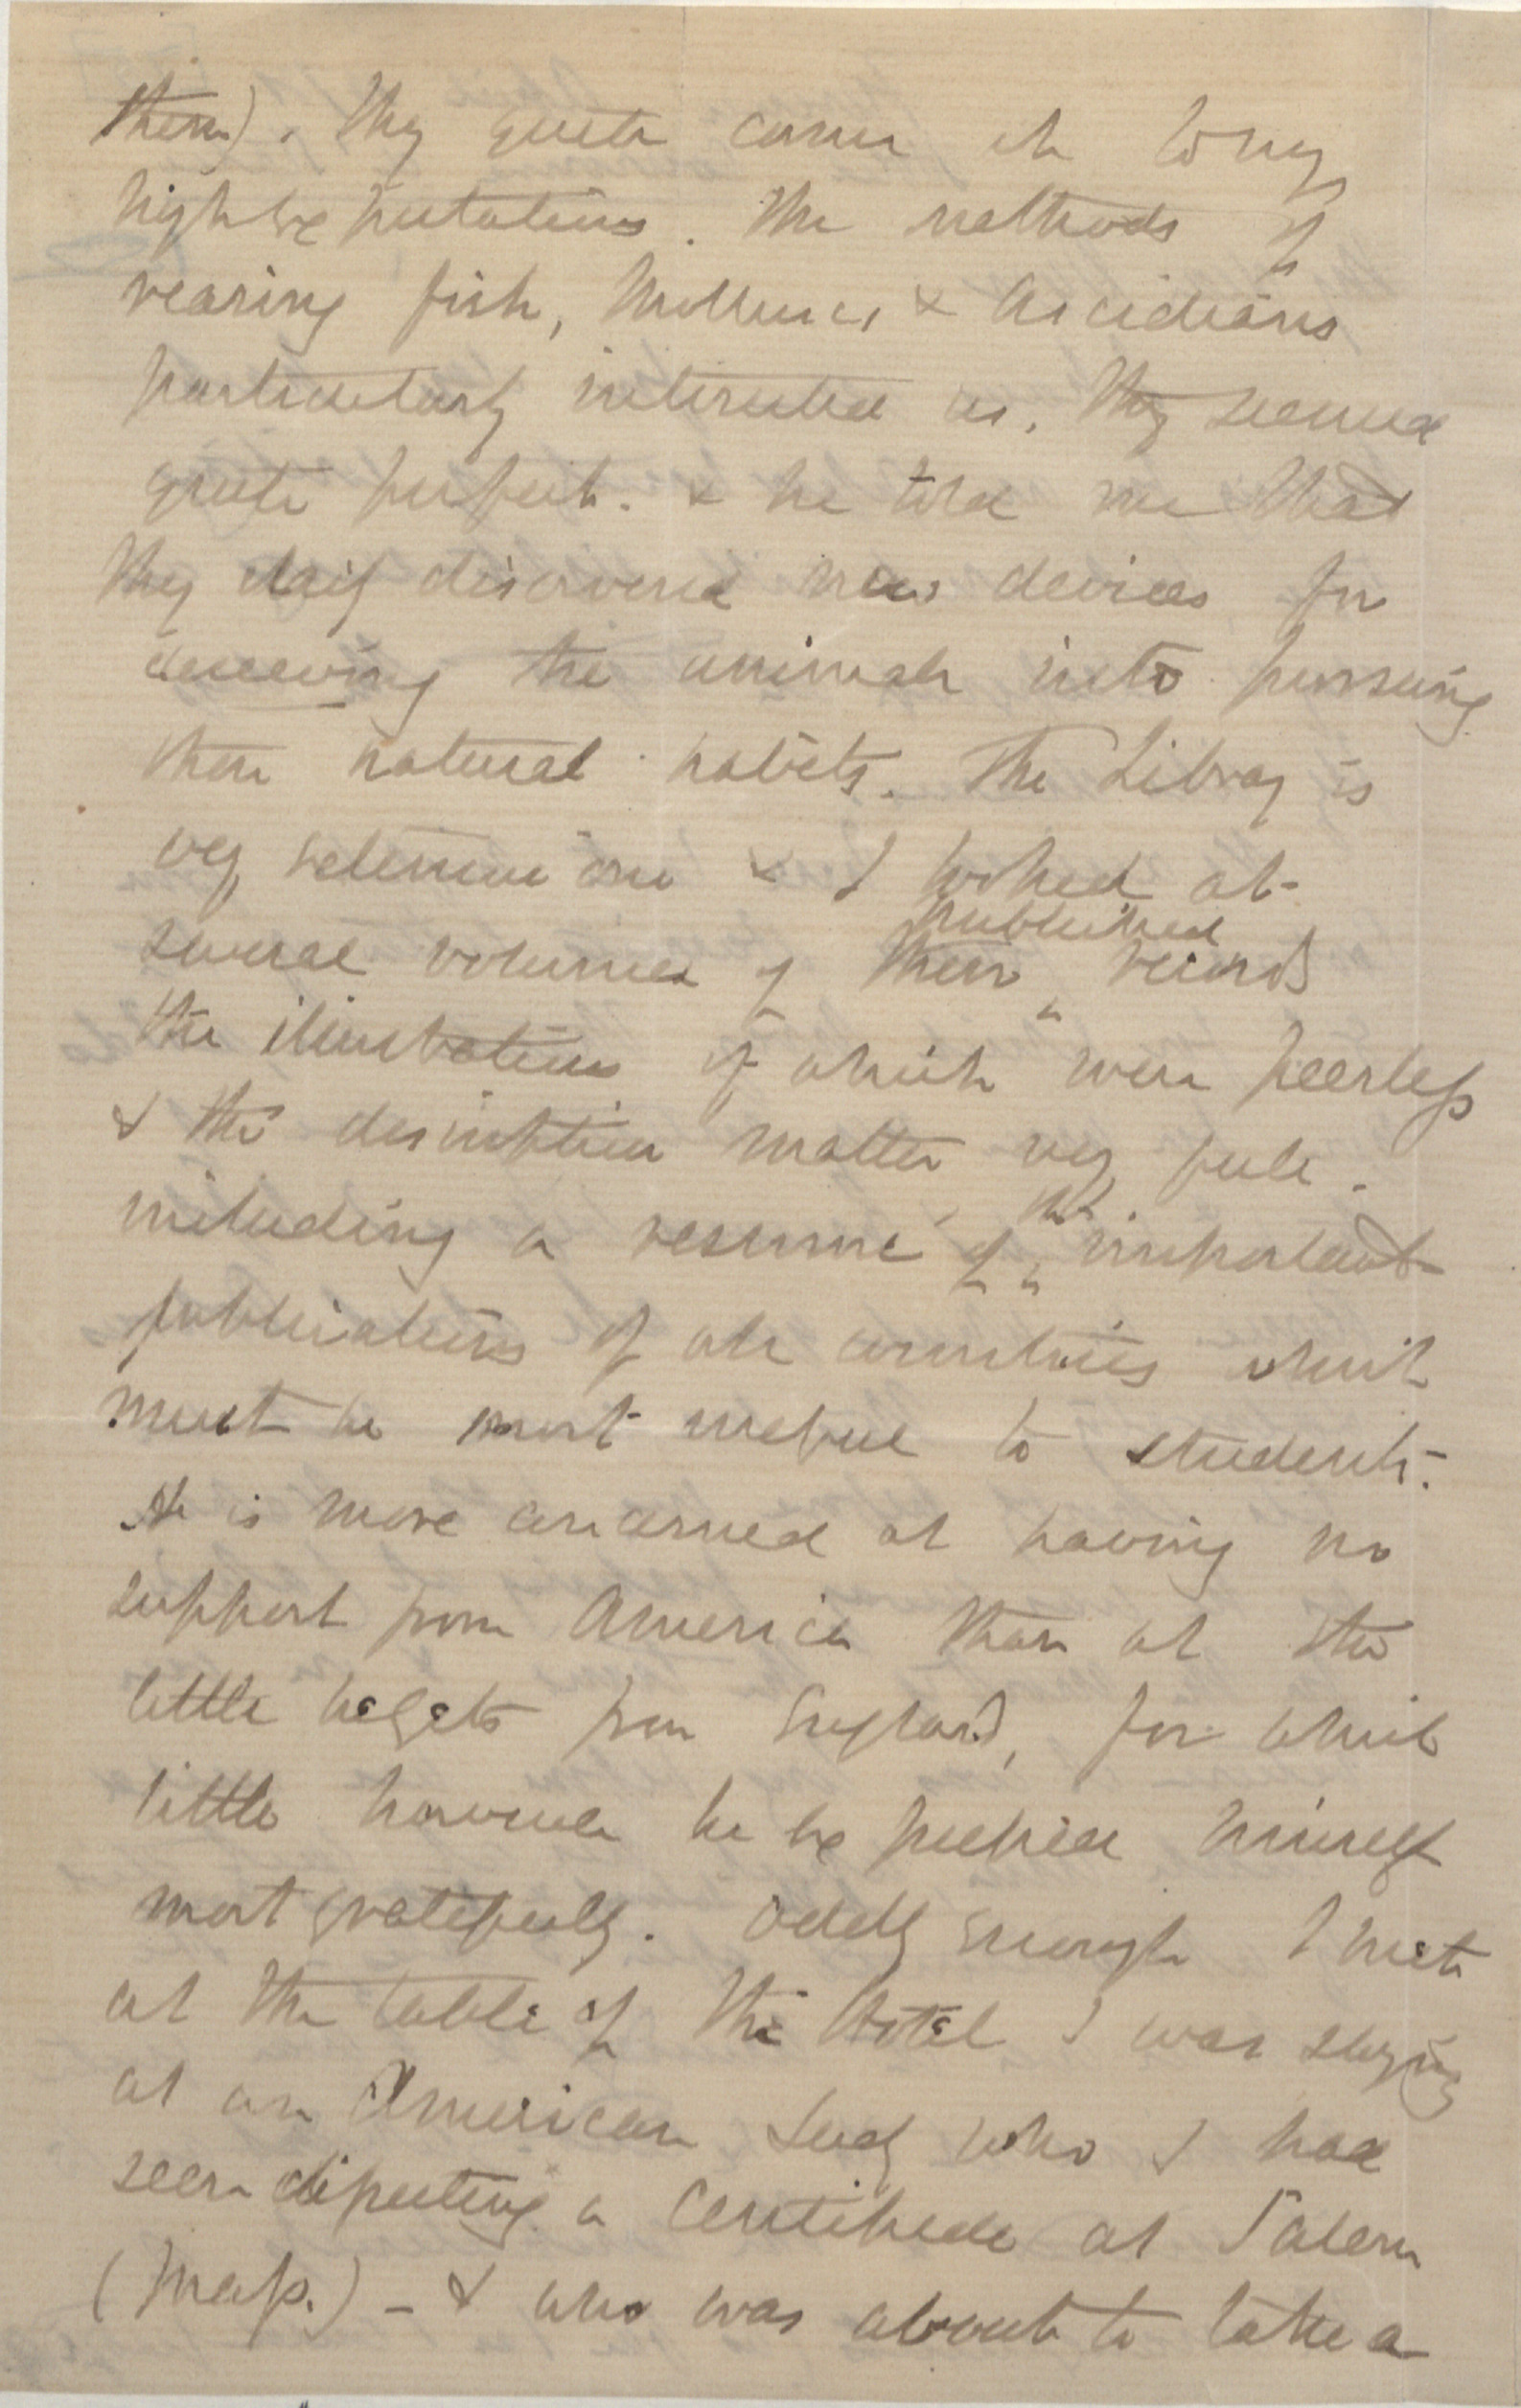 them). They quite came up to my
high expectations. The methods of
rearing fish, Molluscs & Ascidians
particularly interested us. They seemed
quite perfect. & he told me that
they daily discovered new devices for
deceiving the animals into pursuing
their natural habits. The Library is
very extensive one & I looked at
several volumes of their published records
the illustrations of which were peerless
& the descriptive matter very full.
including a resumé of the important
publications of all countries which
must be most useful to students.
He is more concerned at having no
support from America than at the
little he gets from England, for which
little however he expressed himself
most gratefully. Oddly enough I met
at the table of the Hotel I was staying
at an American Lady who I had
seen dissecting a Centipede at Salem
(Mass.) – & who was about to take a